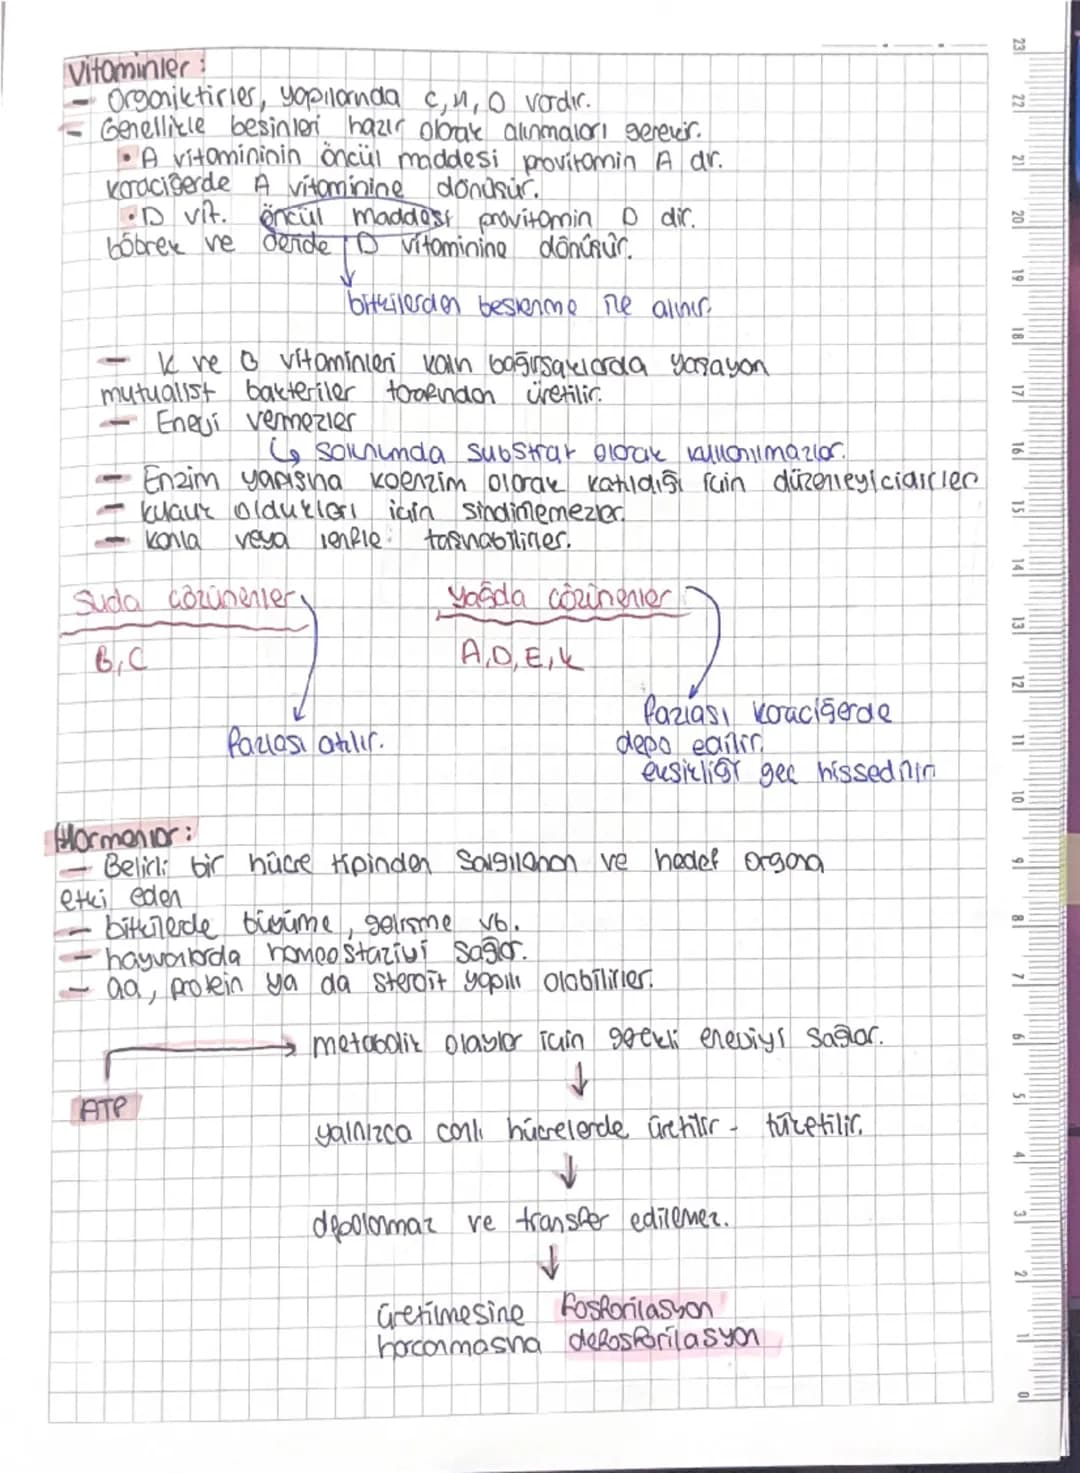 Vitaminler :
- Organiktirler, yapılarında C, H, O vardır.
- Genellikle besinleri hazır olarak alınmaları gerekir.
• A vitamininin öncül maddesi provitamin A dır.
karaciğerde A vitaminine dönüşür.
• D vit. öncül maddesi provitamin D dir.
böbrek ve deride D vitaminine dönüşür.
bitkilerden beslenme ile alınır.
- K ve B vitaminleri kalın bağırsaklarda yaşayan
mutualist bakteriler tarafından üretilir.
- Enerji vermezler
↳ solunumda substrat olarak kullanılmazlar.
- Enzim yapısına koenzim olarak katıldığı için düzenleyicidirler
- küçük oldukları için sindirilemezler.
- kanla veya lenfle taşınabilirler.
Suda çözünenler
B, C
fazlası atılır.
Yağda çözünenler
A, D, E, K
fazlası karaciğerde
depo edilir.
eksikliği geç hissedilir
Hormonlar :
- Belirli bir hücre tipinden salgılanan ve hedef organa
etki eden
- bitkilerde büyüme, gelişme vb.
- hayvanlarda homeostaziyi sağlar.
- aa, protein ya da steroit yapılı olabilirler.
ATP → metabolik olaylar için gerekli enerjiyi sağlar.
↓
yalnızca canlı hücrelerde üretilir - tüketilir.
↓
depolanmaz ve transfer edilemez.
↓
üretilmesine fosforilasyon
harcanmasına defosforilasyon
23
22
21
20
19
18
17
16
15
14
13
12
11
10
9
8
7
6
5
4
3
2
1
0